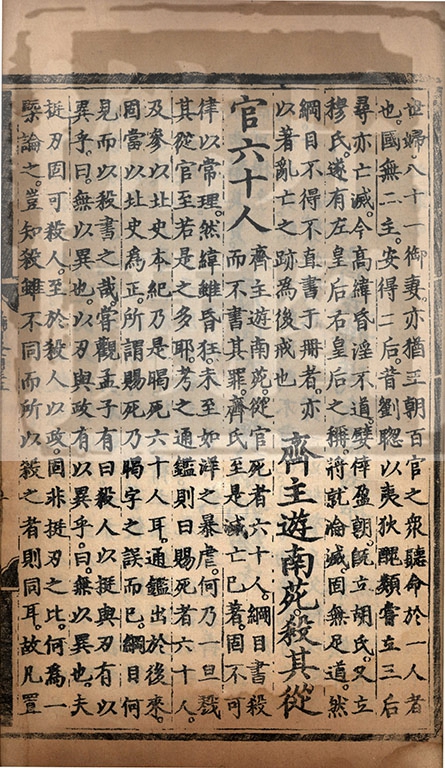 世婦八十一御妻亦猶王朝百官之衆聽命於一人者
也。國無二主。安得二后。昔劉聦以夷狄醜類嘗立三后
尋亦亡滅。今高緯昏淫不道。嬖倖盈朝。旣立胡氏。又立
穆氏。遂有左皇后右皇后之稱。將就淪滅固無足道。然
綱目不得不直書于冊者。亦
以著亂亡之跡為後戒也
齊主遊南苑。殺其從
官六十人
齊主遊南苑。從官死者六十人。綱目書殺
而不書其罪。齊氏至是滅亡已著。固不可
律以常理。然緯雖昏狂。未至如洋之暴虐。何乃一旦戮
其從官至若是之多耶。考之通鑑則曰賜死者六十人。
及參以北史本紀乃是暍死六十人耳。通鑑出於後來。
固當以北史為正。所謂賜死乃暍字之誤而已。綱目何
見而以殺書之哉。嘗觀孟子有曰殺人以挺與刃有以
異乎。曰無以異也。以刃與政有以異乎。曰無以異也。夫
挺刃固可殺人。至於殺人以政。固非挺刃之比。何為一
槩論之。豈知殺雖不同而所以殺之者則同耳。故凡置